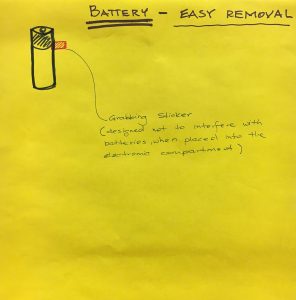 BATTERY - EASY REMOVAL
Grabbing Sticker
(designed not to interfere with
batteries, when placed into the
electronic compartment)